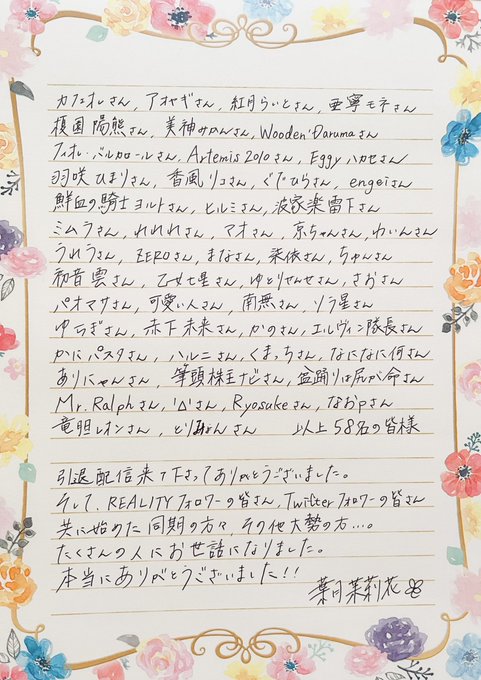 カフェオレさん, アオヤギさん, 紅月らいとさん, 亜寧モネさん
榎園 陽熊さん, 美神みかんさん, Wooden'Darumaさん
フィオレ・バルカロールさん, Artemis2010さん, Eggyハカセさん
羽咲 ひまりさん, 香風リコさん, ぐでひらさん, engeiさん
鮮血の騎士ヨルトさん, ヒルミさん, 波家楽雷下さん
ミムラさん, れれれさん, アオさん, 京ちゃんさん, わいんさん
うれうさん, ZEROさん, まなさん, 染依さん, ちゅんさん
初音 雲さん, 乙女七星さん, ゆとりせんせさん, さおさん
パオマサさん, 可愛い人さん, 南無さん, ソラ星さん
ゆらぎさん, 赤下 未来さん, かのさん, エルヴィン隊長さん
かにパスタさん, ハルニさん, くまっちさん, なになに何さん
ありにゃんさん, 筆頭株主ナビさん, 盆踊りは尻が命さん
Mr.Ralphさん, 'Δ'さん, Ryosukeさん, なおpさん
竜胆レオンさん, とりさん 以上58名の皆様
引退配信来て下さってありがとうございました。
そして、REALITYフォロワーの皆さん, Twitterフォロワーの皆さん
共に始めた同期の方々, その他大勢の方…。
たくさんの人にお世話になりました。
本当にありがとうございました!!
葉月茉莉花